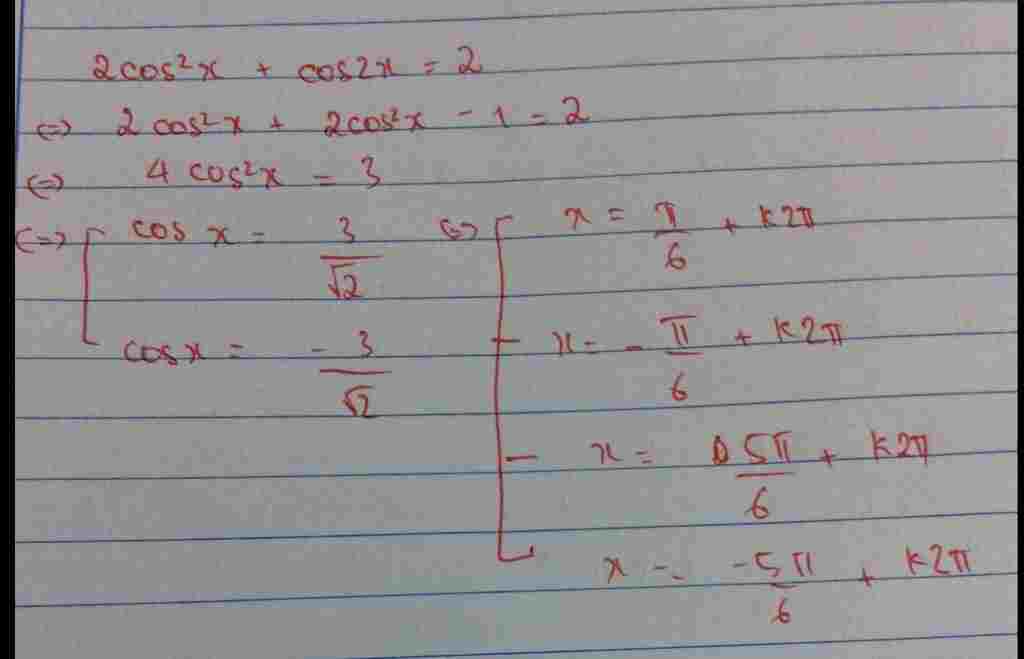 2cos²x + cos2x = 2
<=> 2cos²x + 2cos²x - 1 = 2
<=> 4cos²x = 3
<=> [ cos x = 3/√2 <=> [ x = π/6 + k2π
cosx = -3/√2 x = -π/6 + k2π
x = 5π/6 + k2π
x = -5π/6 + k2π